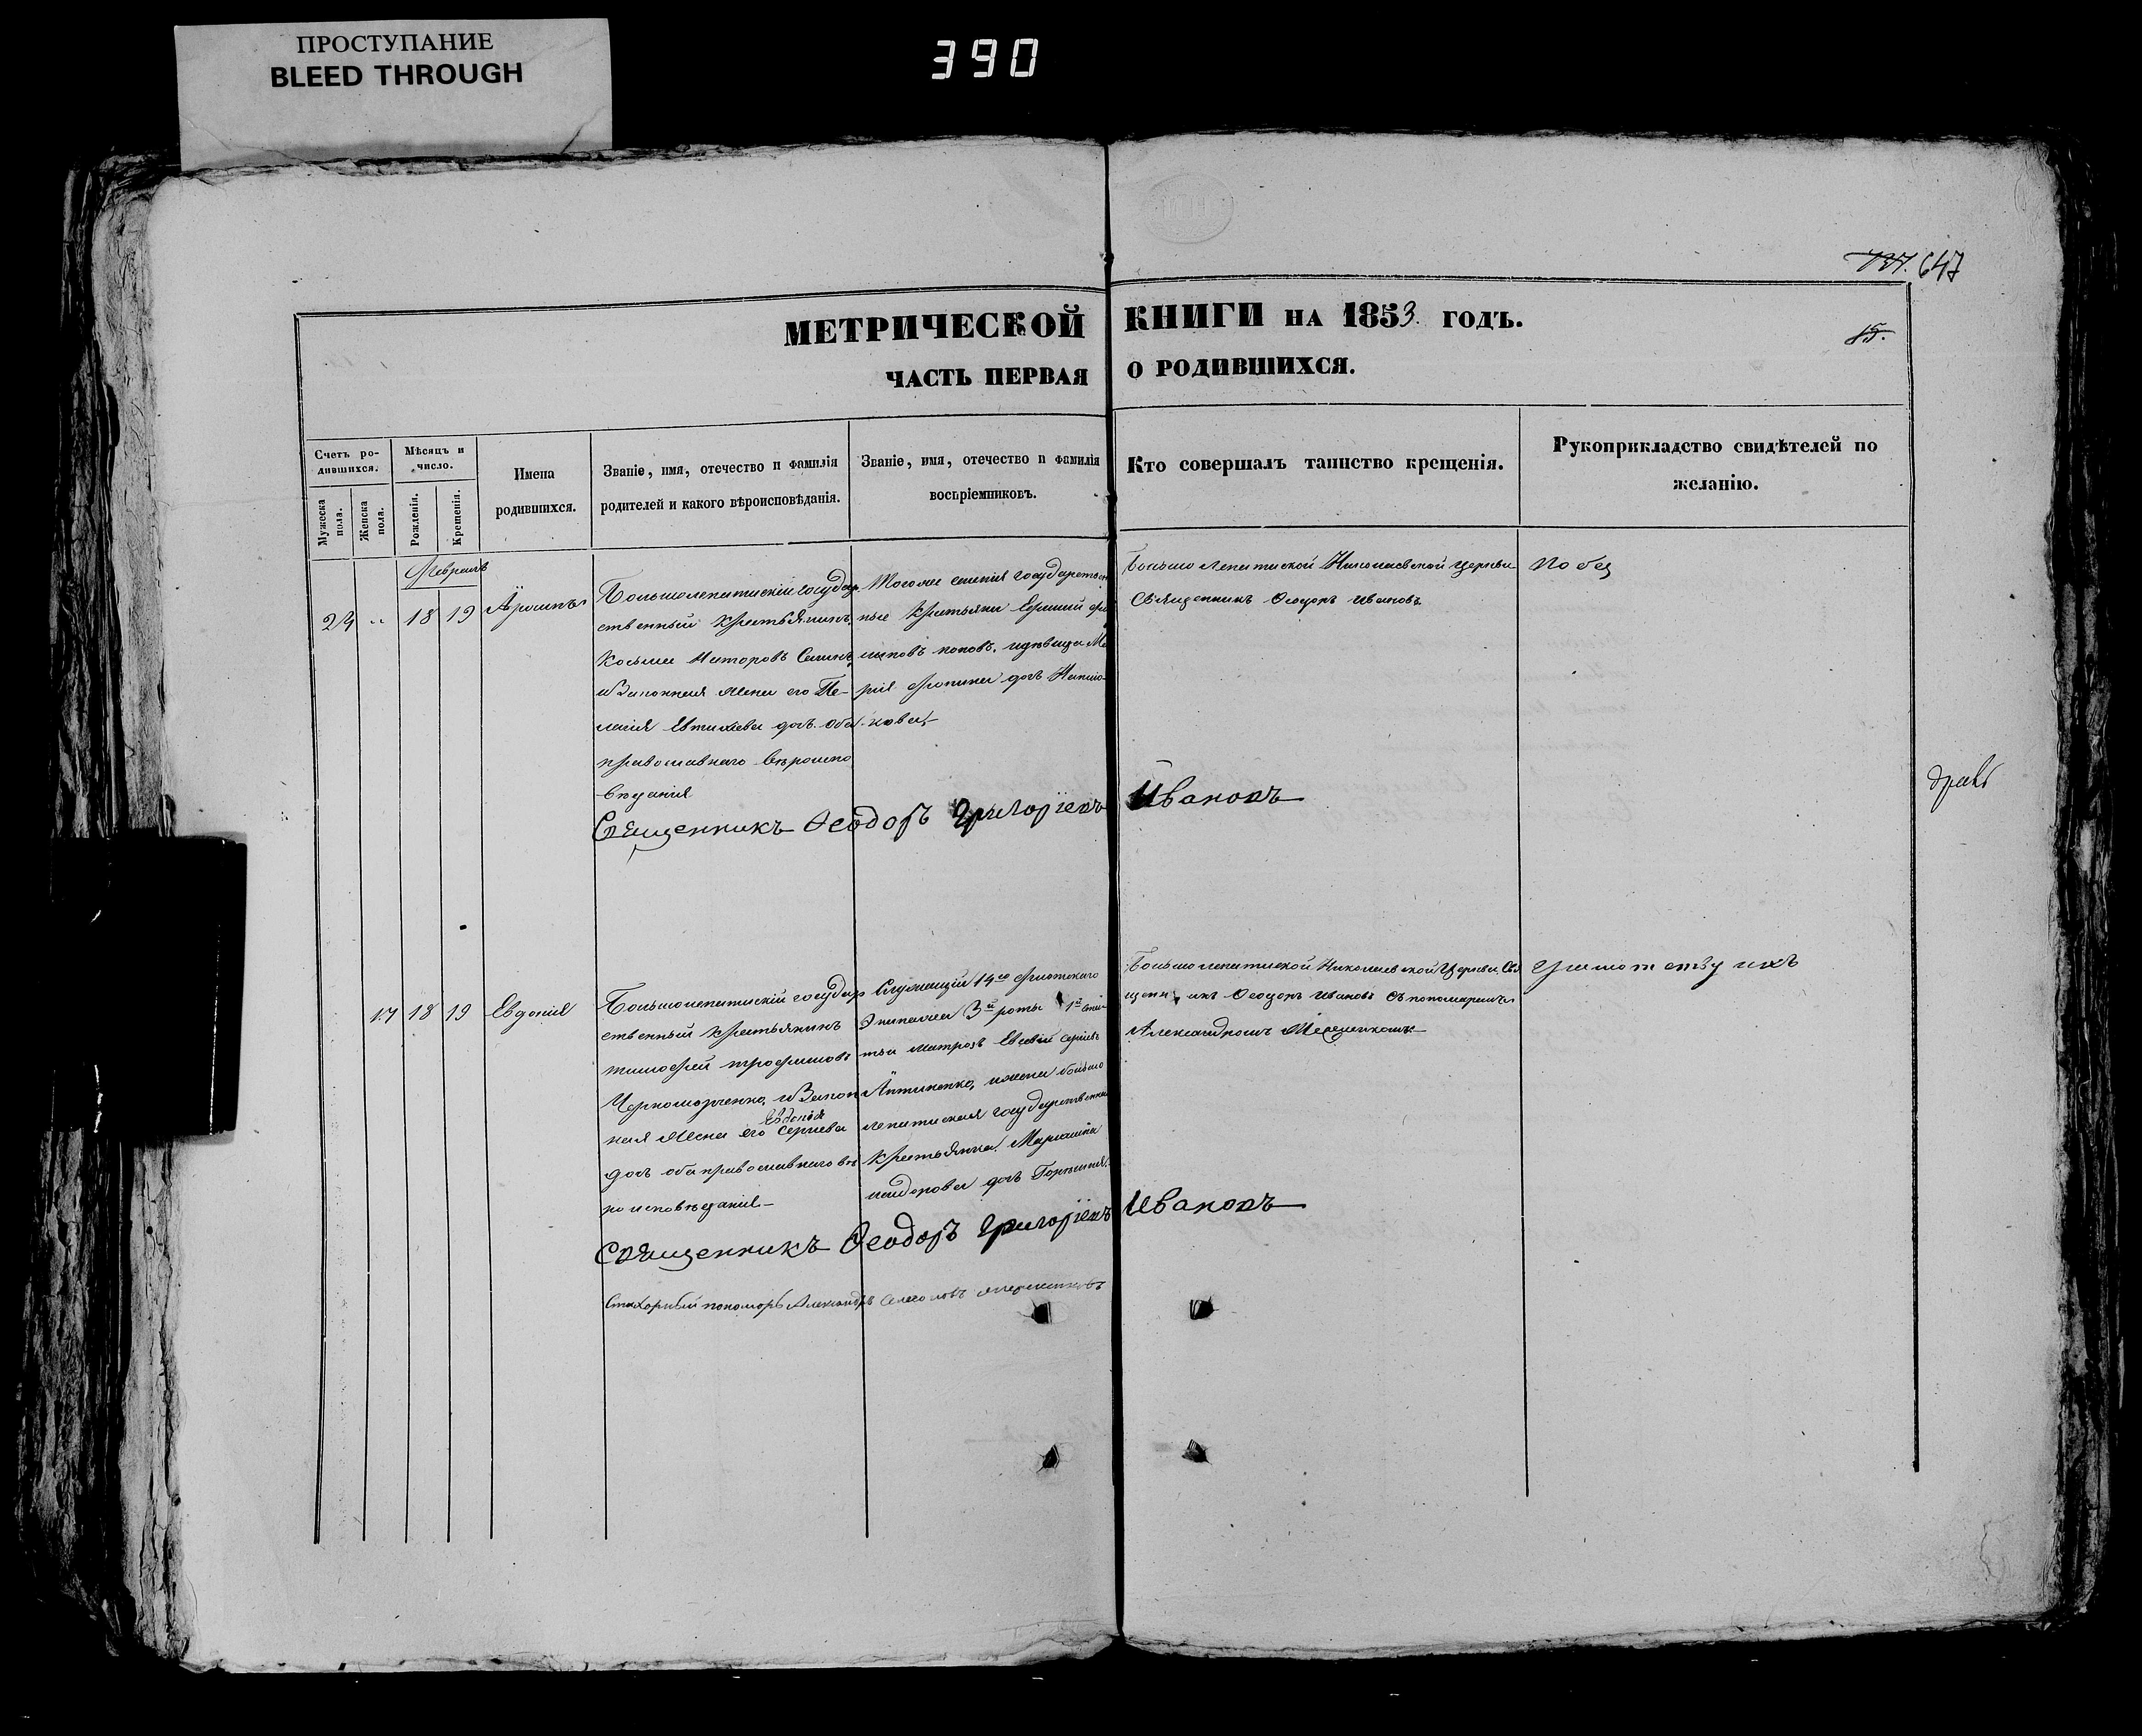 ПРОСТУПАНИЕ
BLEED THROUGH
390
137. 647
МЕТРИЧЕСКОЙ КНИГИ НА 1853. ГОДЪ.
15.
ЧАСТЬ ПЕРВАЯ О РОДИВШИХСЯ.
Счетъ ро-
дившихся.
Мужеска
пола.
Женска
пола.
Мѣсяцъ и
число.
Рожденія.
Крещенія.
Имена
родившихся.
Званіе, имя, отечество и фамилія
родителей и какого вѣроисповѣданія.
Званіе, имя, отечество и фамилія
воспріемниковъ.
Кто совершалъ таинство крещенія.
Рукоприкладство свидѣтелей по
желанію.
Февраль
24 " 18 19
Большолепатискій государ
ственный крестьянинъ
Косьма
и Законная жена его Пе-
лагія Евтихіева дочь. оба
православнаго вѣроиспо
вѣданія
Тогоже селенія государствен
ные крестьяне
поповъ. и дѣвица Ма
рія дочь
кова
Большо Лепатиской Николаевской церкви
Священникъ Ѳеодоръ Ивановъ
По без
Священникъ Ѳеодоръ Григоріевъ Ивановъ
17 18 19 Евдокія
Большолепатискій государ
ственный крестьянинъ
тимофей трофимовъ
Черноморченко, и Закон
ная жена его Евдокія Сергіева
дочь оба православнаго вѣ
роисповѣданія
Служащій 14го флотскаго
Экипажа 3й роты 1й ста-
тьи матрозъ Евсевій Сергіевъ
и жена большо
лепатиская государственная
крестьянка
дочь
Большо лепатиской Николаевской Церкви Свя
щенникъ Ѳеодоръ Ивановъ съ пономаремъ
Александромъ
Грамотству ихъ
Священникъ Ѳеодоръ Григоріевъ Ивановъ
Стихарный пономарь Александръ